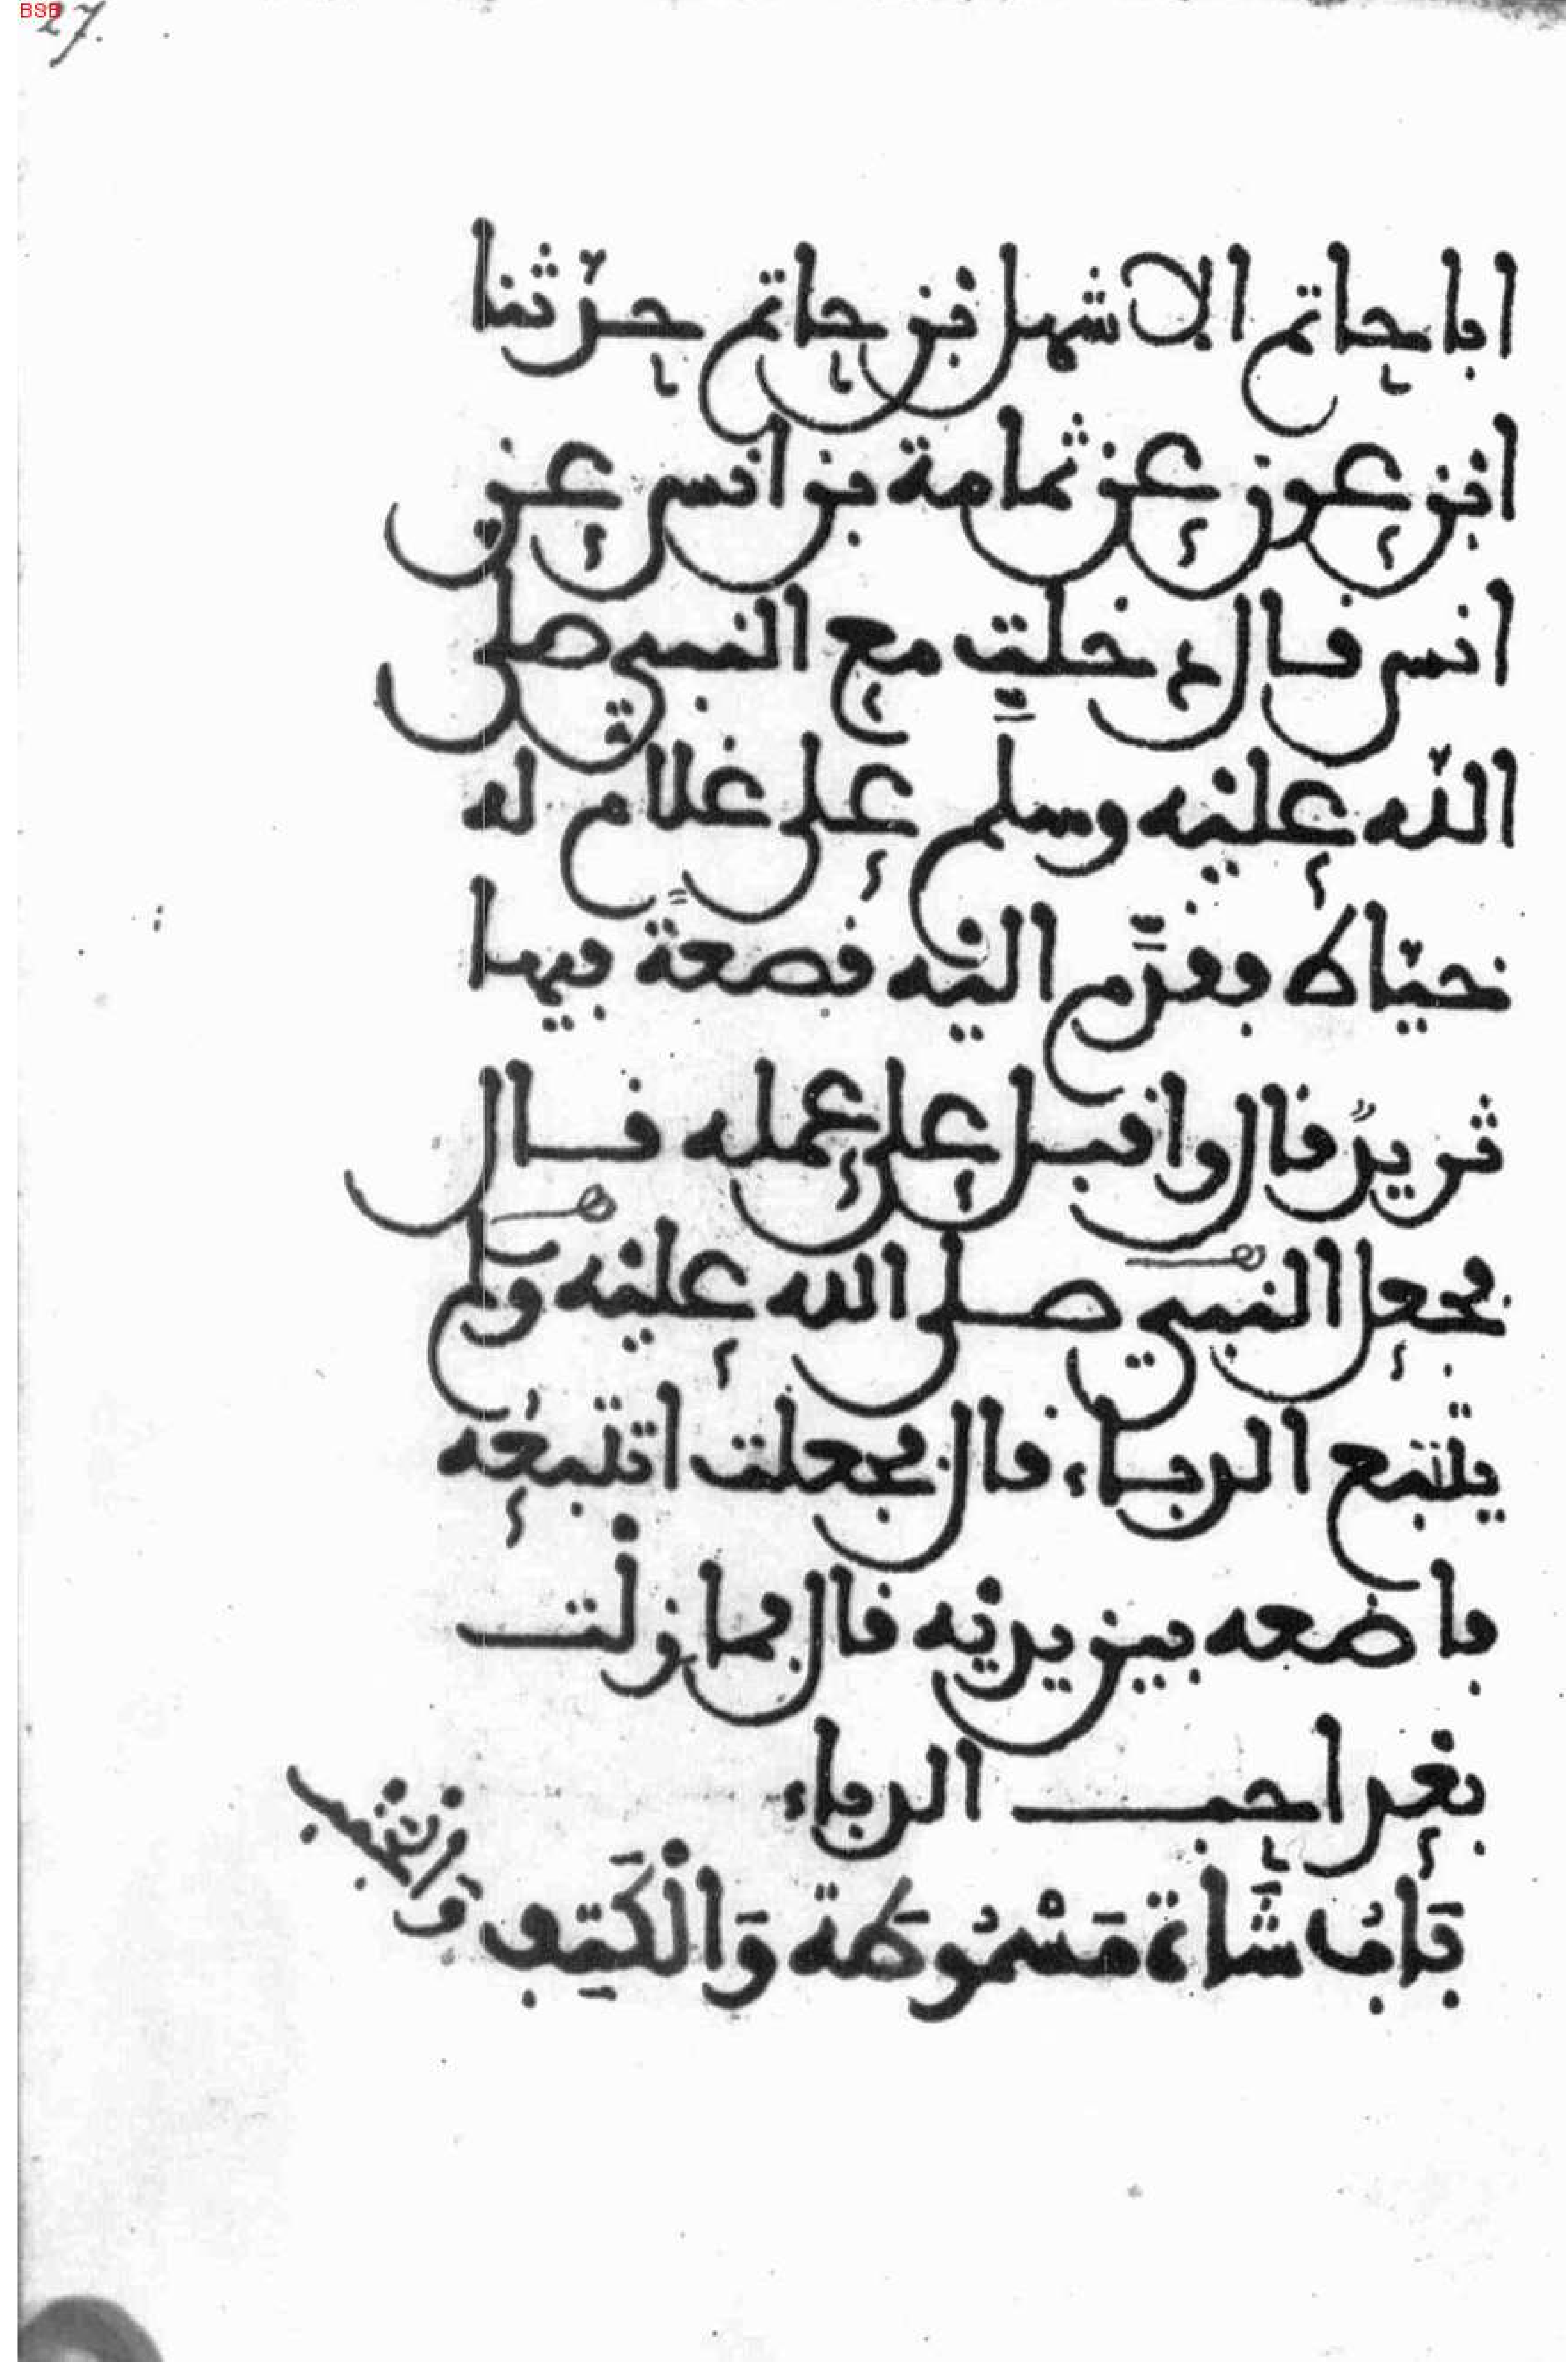 BSB
27.
ابا حاتم الاشهل بن حاتم حدّثنا
ابن عون عن ثمامة بن انس عن
انس قال دخلت مع النبي صلى
اللّه عليه وسلّم على غلام له
خيّاط فقدّم اليه قصعةً فيها
ثريدٌ قال واقبل على عمله قال
فجعل النبي صلى الله عليه وسلم
يتتبع الدباء قال فجعلت اتتبعه
فاضعه بين يديه قال فما زلت
بعد احب الدباء
بَابُ شَاة مَسْمُوطَة وَالْكَتِفِ وَالجَنْبِ